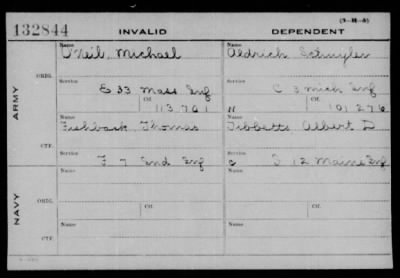 (3-H-5)
132844 INVALID DEPENDENT
Name O'Neil, Michael Name Aldrich Schuyler
ORIG.
Service E 33 Mass Inf Service C 3 Mich Inf
ARMY
Ctf. 113761 Ctf. 101276
Name Fishback Thomas Name Tibbetts Albert D
CTF.
Service F 7 Ind Inf Service C 12 Maine Inf
Name Name
NAVY
ORIG.
Ctf. Ctf.
Name Name
CTF.